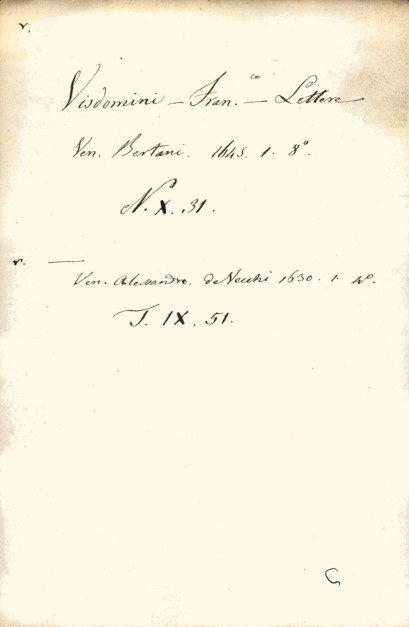 r.
Visdomini — Fran.co — Lettere
Ven. Bertani. 1645. 1. 8°.
N. X. 31.
r. —
Ven. Alessandro. de Vecchi 1630. 1. 4°.
T. IX. 51.
G